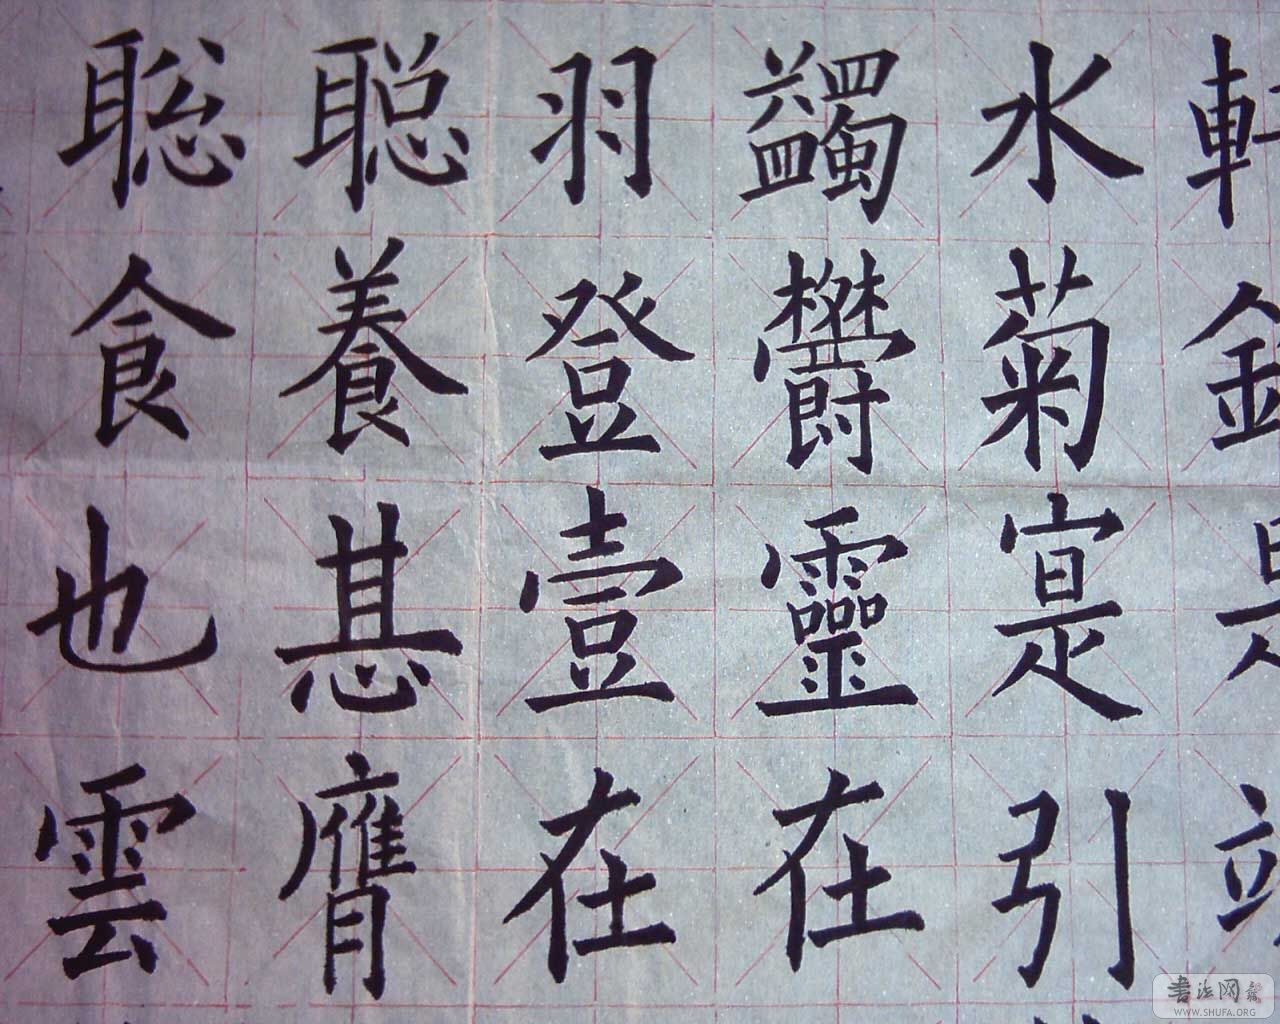 水菊寔引
蠲鬱靈在
羽登壹在
聪養惎膺
聡食也雲
書法网
WWW.SHUFA.ORG